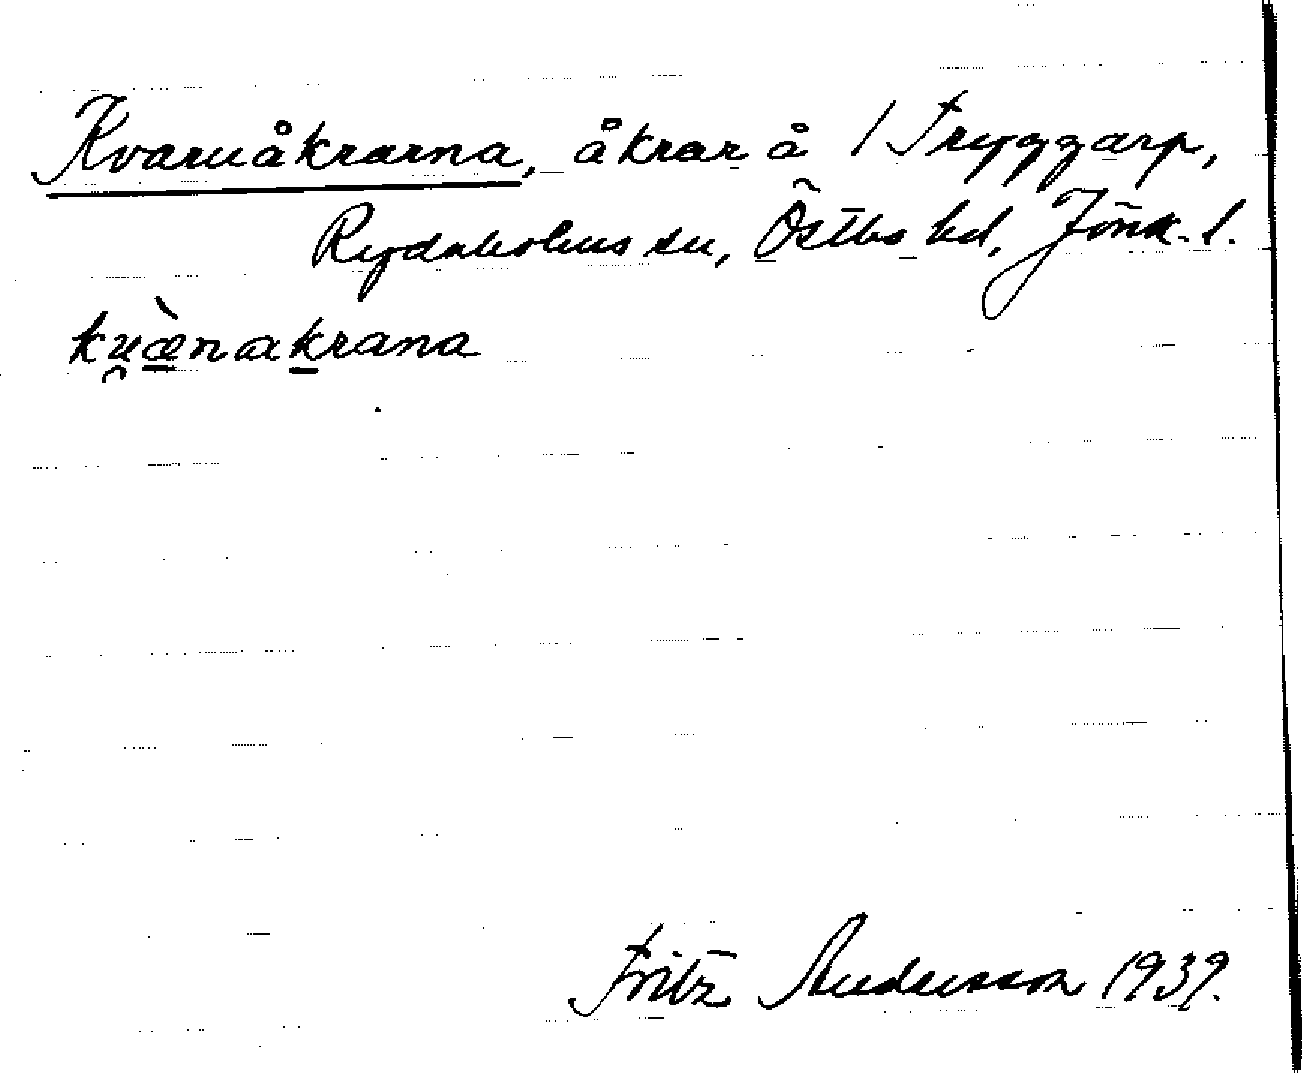 Kvarnåkrarna, åkrar å 1 Tryggarp,
Rydaholms sn, Östbo hd, Jönk. l.
ku̯æ̀nakrana
Fritz Andersson 1939.